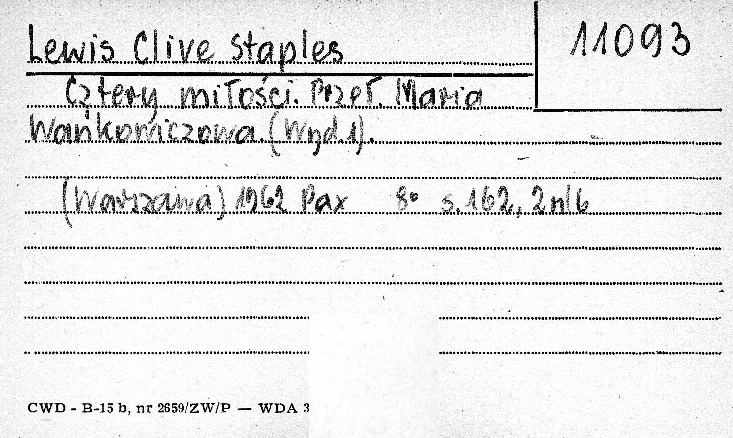 Lewis Clive Staples
11093
Cztery miłości. Przeł. Maria
Wańkowiczowa. (Wyd 1).
(Warszawa) 1962 Pax 8° s. 162, 2 nlb
CWD - B-15 b, nr 2659/ZW/P — WDA 3